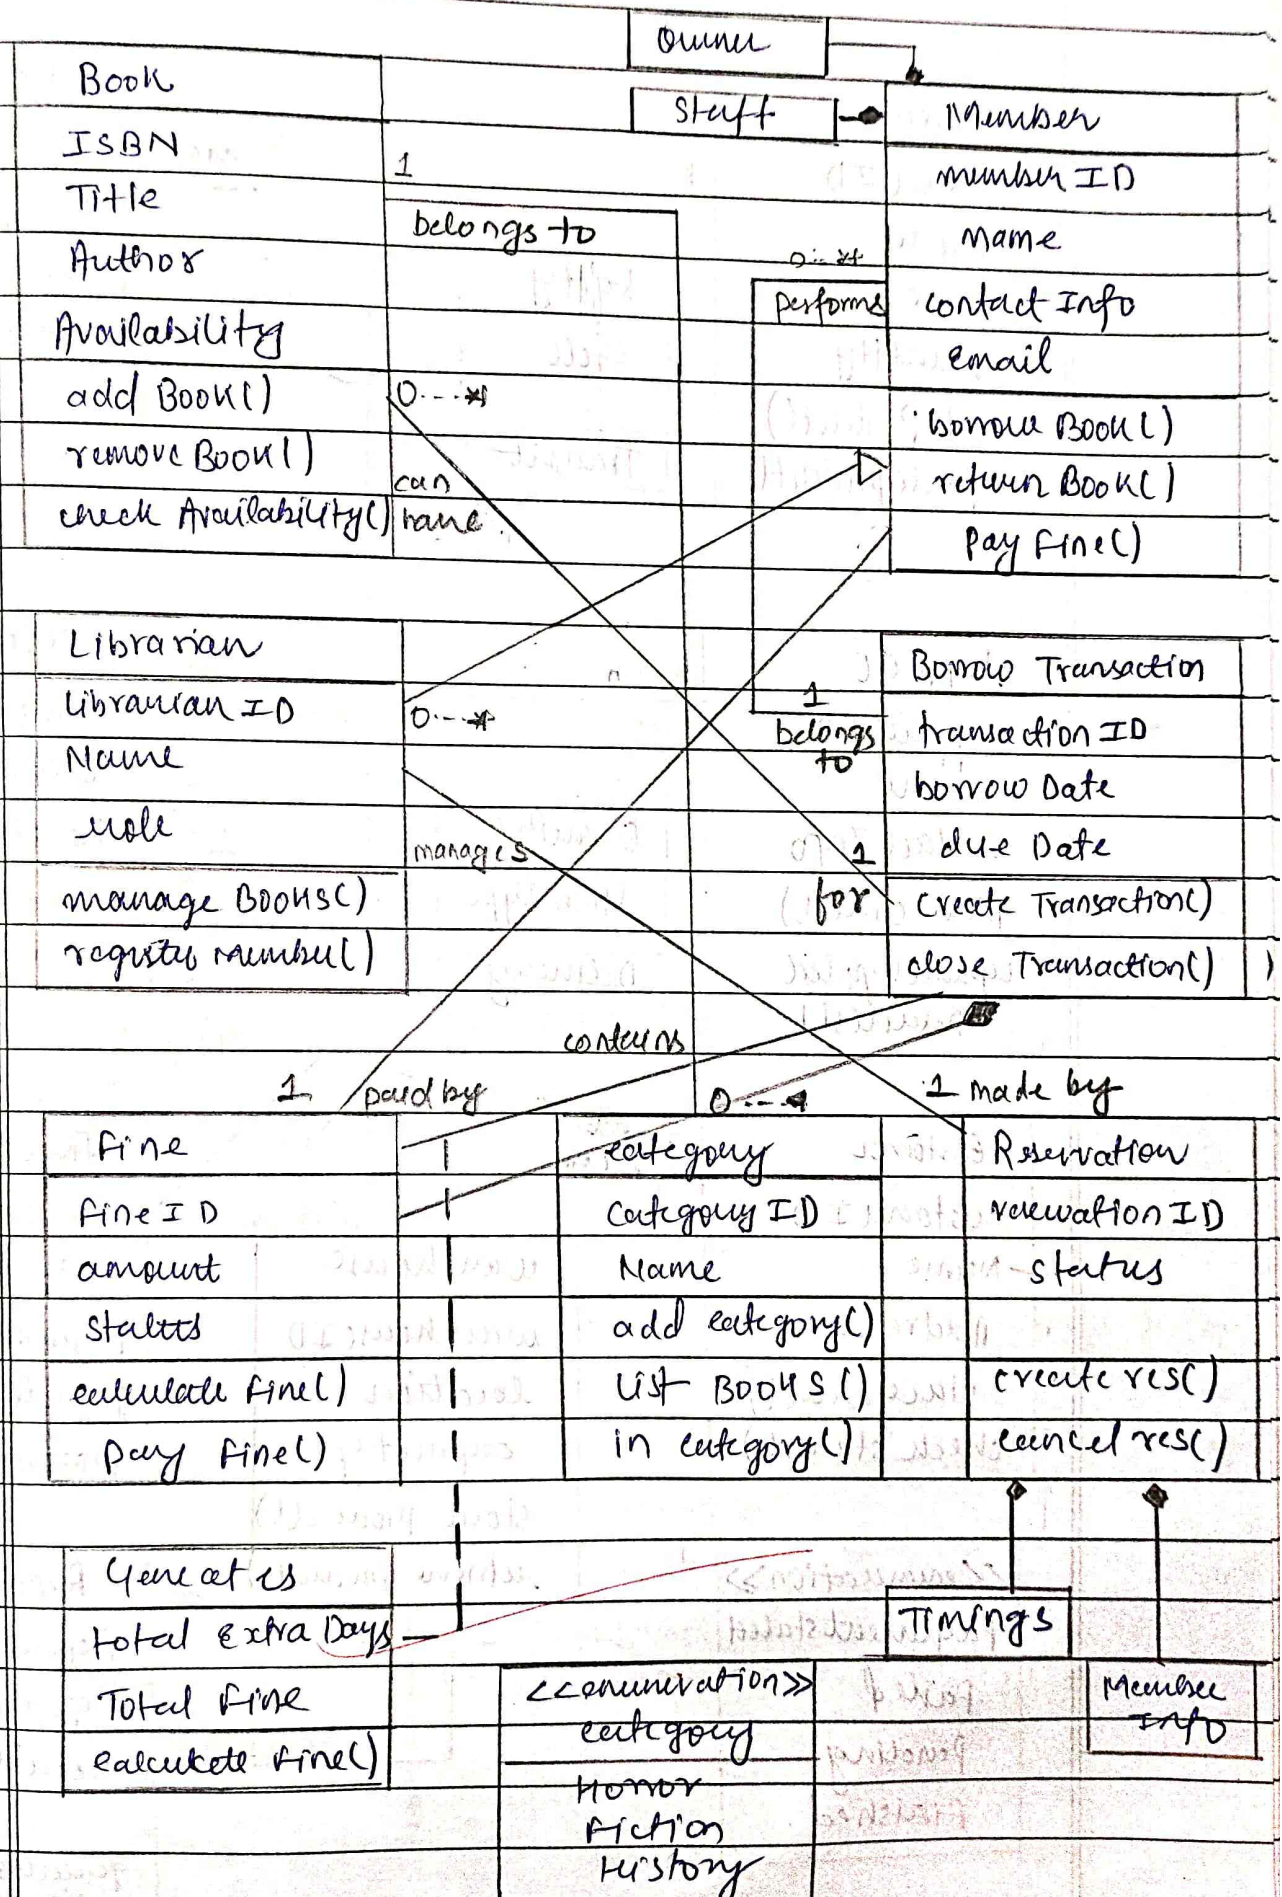 Owner
Staff
Book
ISBN
Title
Author
Availability
add Book()
remove Book()
check Availability()
1
belongs to
0---*
can
have
Member
member ID
Name
contact Info
Email
borrow Book()
return Book()
Pay fine()
0--*
performs
Librarian
Librarian ID
Name
role
manage Books()
register Member()
0---*
manages
1
belongs
to
1
for
Borrow Transaction
transaction ID
borrow Date
due Date
create Transaction()
close Transaction()
contains
1
paid by
0---*
1 made by
Fine
fine ID
amount
status
calculate fine()
Pay fine()
category
category ID
Name
add category()
List Books()
in category()
Reservation
reservation ID
status
create res()
cancel res()
total Extra Days
Total fine
calculate fine()
<<enumeration>>
category
Horror
Fiction
History
Timings
Member
Info